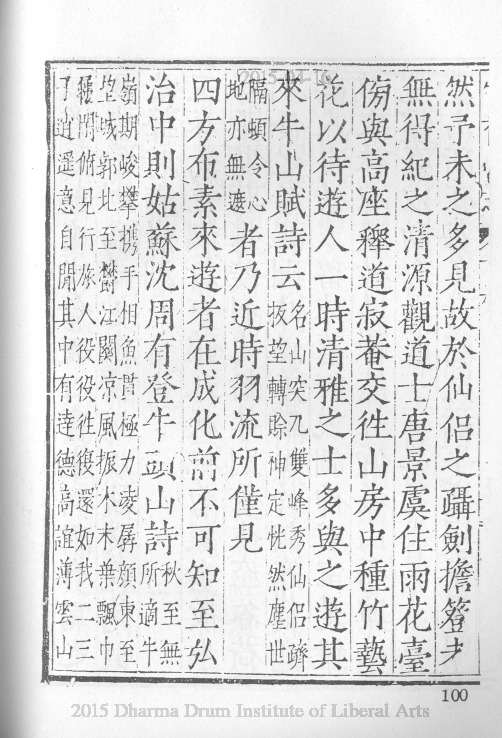 然予未之多見故於仙侶之躡劍擔簦才
無得紀之清源觀道士唐景虞住雨花臺
傍與高座釋道寂菴交徃山房中種竹藝
花以待遊人一時清雅之士多與之遊其
來牛山賦詩云名山突兀雙峰秀仙侶躋
扳望轉賒神定恍然塵世
隔頓令心
地亦無遮者乃近時羽流所僅見
四方布素來遊者在成化前不可知至弘
治中則姑蘇沈周有登牛頭山詩秋至無
所適牛
嶺期峻攀攜手相魚貫極力凌孱顏東至
望城郭北至鬱江關凉風振木末葉飄巾
袂間俯見行旅人役役徃復還如我二三
了逍遥意自閒其中有達德高誼薄雲山
100
2015 Dharma Drum Institute of Liberal Arts